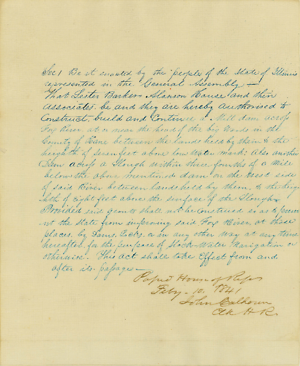 Sec 1 Be it enacted by the people of the State of Illinois
represented in the General Assembly —
That Lester Barker Alanson and their
associates be and they are hereby authorised to
Construct, build and Continue a Mill dam across
Fox river at or near the head of the big Bends in the
County of Kane between the lands held by them to the
height of feet above low water mark Also another
Dam across a Slough within three fourths of a Mile
below the above mentioned dam on the west side
of said river between lands held by them, to the heigh
th of eight feet above the surface of the Slough
Provided said grants shall not be construed so as to prevent
at the State from improving said Fox River at those
places, by Dams, Locks, or in any other way at any time
hereafter for the purpose of Slack Water Navigation or
otherwise. This act shall take effect from and
after its passage —
House of Reps
Feby 1841
John Calhoun
Clk H R